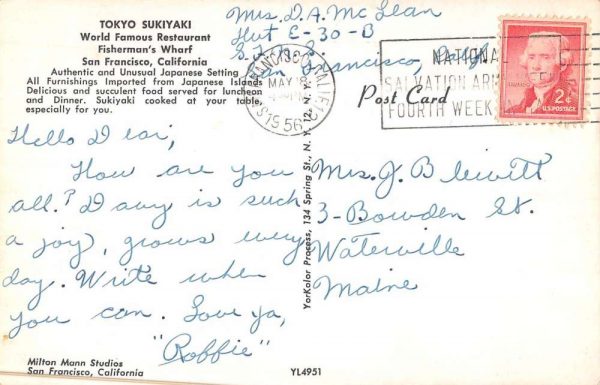 TOKYO SUKIYAKI
World Famous Restaurant
Fisherman's Wharf
San Francisco, California
Authentic and Unusual Japanese Setting
All Furnishings Imported from Japanese Islands
Delicious and succulent food served for luncheon
and Dinner. Sukiyaki cooked at your table,
especially for you.
Mrs. D. A. McLean
Hut E-30-B
San Francisco, Calif.
SAN FRANCISCO, CALIF.
MAY 8
1956
NATIONAL
SALVATION ARMY
FOURTH WEEK
2¢
U.S. POSTAGE
Post Card
Hello Dear,
How are you
all? D any is such
a joy, grows every
day. Write when
you can. Love ya,
"Roffie"
Mrs. J. B
3-Bowden St.
Waterville
Maine
YorKolor Process, 134 Spring St., N. Y. 12, N. Y.
Milton Mann Studios
San Francisco, California
YL4951